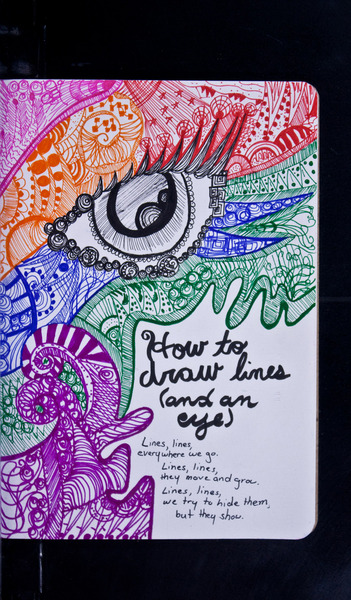 How to
draw lines
(and an
eye)
Lines, lines,
everywhere we go.
Lines, lines,
they move and grow.
Lines, lines,
we try to hide them,
but they show.